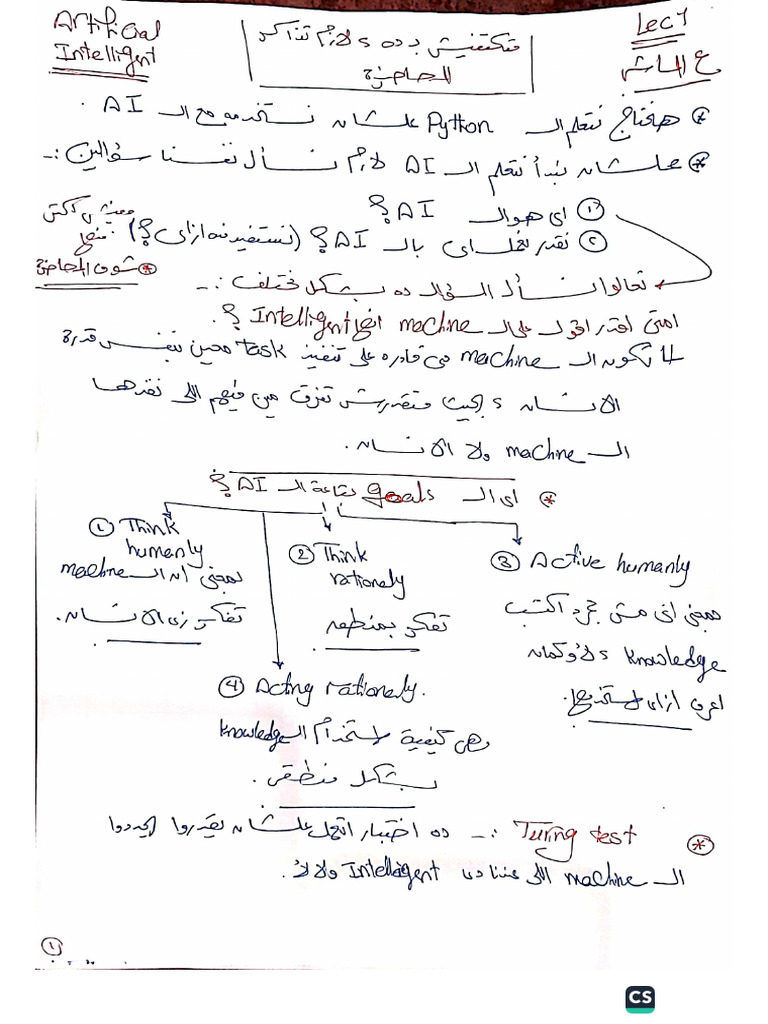 Artificial
Intelligent
Lec 1
ع الماشي
متكتفيش بده و لازم تذاكر
المحاضرة
* هنحتاج نتعلم الـ Python علشان نستخدمه مع الـ AI .
* علشان نبدأ نتعلم الـ AI لازم نسأل نفسنا سؤالين :-
① اى هو الـ AI ؟
② نقدر نعمل اى بالـ AI ؟ (نستفيد منه ازاى ؟)
* شوف المحاضرة
تعالوا نسأل السؤال ده بشكل مختلف :-
امتى اقدر اقول على الـ machine انها Intelligent ؟
لما تكون الـ machine دى قادره على تنفيذ task معين بنفس قدرة
الانسان و بحيث متقدرش تفرق مين فيهم اللى نفذها
الـ machine ولا الانسان .
* اى الـ goals بتاعة الـ AI ؟
① Think
humanly
بمعنى ان الـ machine
تفكر زى الانسان .
② Think
rationely
تفكر بمنطقيه
③ Active humanly
بمعنى انى مش مجرد اكتسب
knowledge لا وكمان
اعرف ازاى استخدمها .
④ Acting rationely.
وهى كيفية استخدام الـ knowledge
بشكل منطقى .
* Turing test :- ده اختبار اتعمل علشان يقدروا يحددوا
الـ machine اللى عندنا دى Intelligent ولا لأ .
①
CS